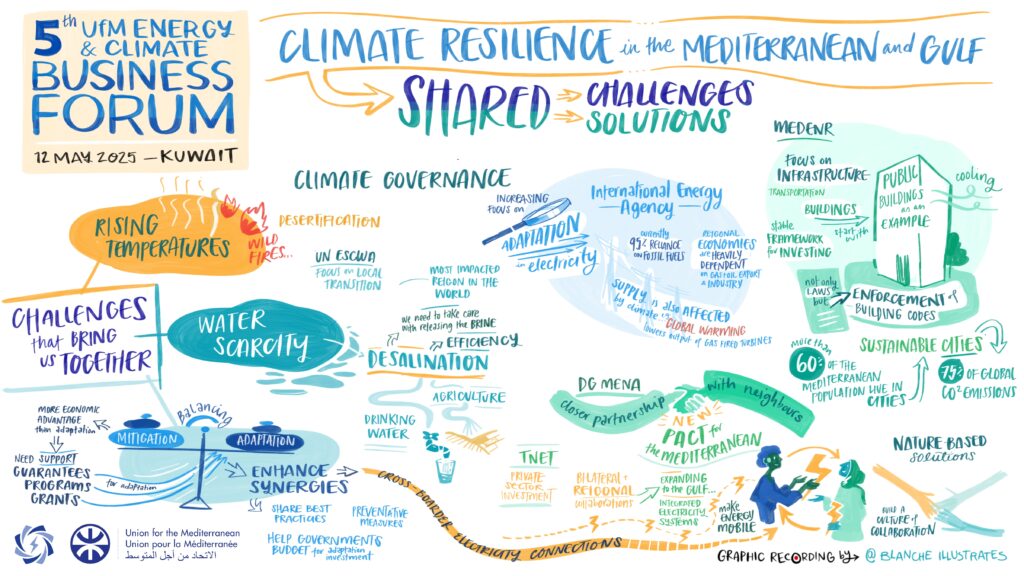 5th UfM ENERGY
& CLIMATE
BUSINESS
FORUM
12 MAY. 2025 — KUWAIT
CLIMATE RESILIENCE in the MEDITERRANEAN and GULF
SHARED
CHALLENGES
SOLUTIONS
CLIMATE GOVERNANCE
RISING
TEMPERATURES
WILD
FIRES...
DESERTIFICATION
UN ESCWA
FOCUS ON LOCAL
TRANSITION
MOST IMPACTED
REIGON IN THE
WORLD
CHALLENGES
that BRING
us TOGETHER
WATER
SCARCITY
we need to take care
with releasing the BRINE
EFFICIENCY
DESALINATION
AGRICULTURE
DRINKING
WATER
INCREASING
FOCUS on
ADAPTATION
in electricity
International Energy
Agency
currently
95% RELIANCE
ON FOSSIL FUELS
REIGONAL
ECONOMIES
are HEAVILY
DEPENDENT
ON GAS/OIL EXPORT
& INDUSTRY
SUPPLY is also AFFECTED
by climate
GLOBAL WARMING
lowers output of GAS FIRED TURBINES
MEDENER
FOCUS on
INFRASTRUCTURE
TRANSPORTATION
BUILDINGS
start with
stable
FRAMEWORK
for INVESTING
PUBLIC
BUILDINGS
as an
EXAMPLE
cooling
not only
LAWS
but
ENFORCEMENT of
BUILDING CODES
SUSTAINABLE CITIES
more than
60% OF THE
MEDITERRANEAN
POPULATION LIVE IN
CITIES
75% OF GLOBAL
CO² EMISSIONS
DG MENA
closer partnership
with neighbours
NEW
PACT for
the MEDITERRANEAN
MORE ECONOMIC
ADVANTAGE
than adaptation
Balancing
MITIGATION
ADAPTATION
NEED SUPPORT
GUARANTEES
PROGRAMS
GRANTS
for adaptation
ENHANCE
SYNERGIES
SHARE BEST
PRACTICES
PREVENTATIVE
MEASURES
HELP GOVERNMENTS
BUDGET for adaptation
investment
CROSS-BOARDER ELECTRICITY CONNECTIONS
TNET
PRIVATE
SECTOR
INVESTMENT
BILATERAL +
REIGONAL
collaborations
EXPANDING
to the GULF...
INTEGRATED
ELECTRICITY
SYSTEMS
make
ENERGY
MOBILE
NATURE-BASED
solutions
BUILD A
CULTURE of
COLLABORATION
Union for the Mediterranean
Union pour la Méditerranée
الاتحاد من أجل المتوسط
GRAPHIC RECORDING by @ BLANCHE ILLUSTRATES